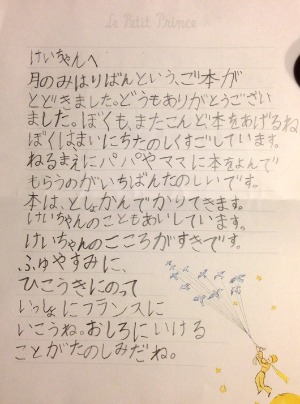 Le Petit Prince
けいちゃんへ
月のみはりばんという、ご本が
とどきました。どうもありがとうござい
ました。ぼくも、またこんど本をあげるね
ぼくはまいにちたのしくすごしています。
ねるまえにパパやママに本をよんで
もらうのがいちばんたのしいです。
本は、としょかんでかりてきます。
けいちゃんのこともあいしています。
けいちゃんのこころがすきです。
ふゆやすみに、
ひこうきにのって
いっしょにフランスに
いこうね。おしろにいける
ことがたのしみだね。